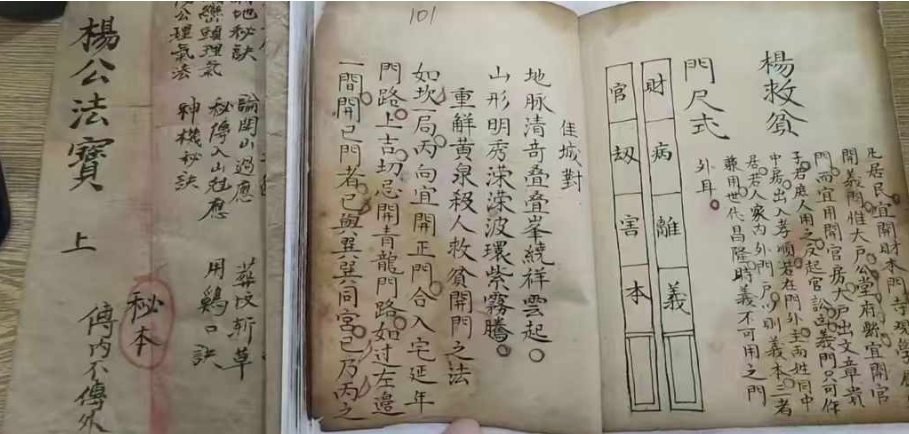 楊公法寶
上
秘本
傳内不傳外
地秘訣
巒頭理氣
公理氣法
論閗山過應
秘傳入山尅應
神機秘訣
葬坟斬草
用鷄口訣
楊救貧
門尺式
財病離義
官劫害本
凡居民宜開財本門
開義門惟大戶公堂府縣宜開官
門而宜用開官房大戶出文章貴
子若庭人用之反起官訟造義門只可作
中房出入孝順若在門外主両姓同中
居若人家内外門戶以則義本三者
兼用世代昌隆時義不可用之門
外耳
101
佳城對
地脉清奇叠叠峯繞祥雲起
山形明秀深深波環紫霧騰
重鮮黄泉殺人救貧開門之法
如坎一局丙向宜開正門合入宅延年
門路上吉切忌開青龍門路如过左邉
一間開巳門者巳與巽巽同宮巳乃丙之